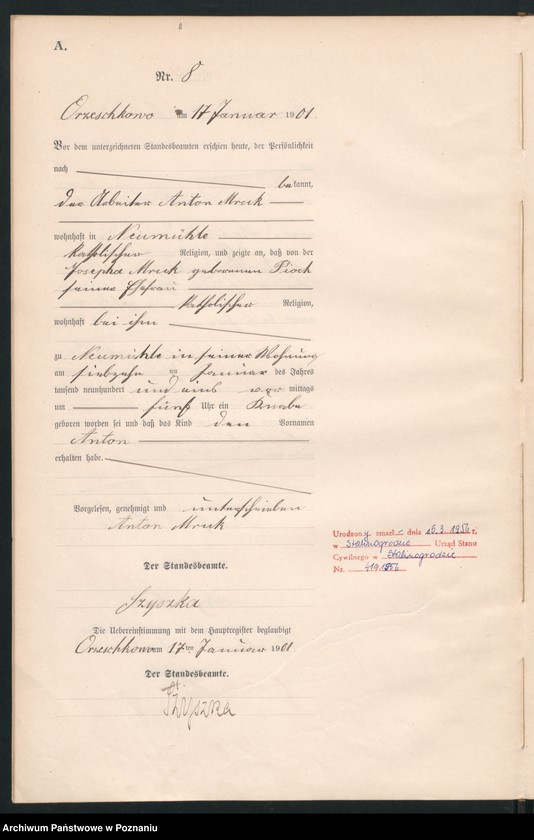 A.
Nr. 8
Orzeschkowo am 17 Januar 1901
Vor dem unterzeichneten Standesbeamten erschien heute, der Persönlichkeit
nach
bekannt,
der Arbeiter Anton Mruk
wohnhaft in Neumühle
katholischer Religion, und zeigte an, daß von der
Josepha Mruk geborenen Pioch
seiner Ehefrau
katholischer Religion,
wohnhaft bei ihm
zu Neumühle in seiner Wohnung
am siebzehn ten Januar des Jahres
tausend neunhundert und eins vor mittags
um fünf Uhr ein Knabe
geboren worden sei und daß das Kind den Vornamen
Anton
erhalten habe.
Vorgelesen, genehmigt und unterschrieben
Anton Mruk
Der Standesbeamte.
Szyszka
Die Uebereinstimmung mit dem Hauptregister beglaubigt
Orzeschkowo am 17ten Januar 1901
Der Standesbeamte.
Szyszka
Urodzony zmarł dnia 16.3.1956 r.
w Stalinogrodzie Urząd Stanu
Cywilnego w Stalinogrodzie
Nr.
Archiwum Państwowe w Poznaniu